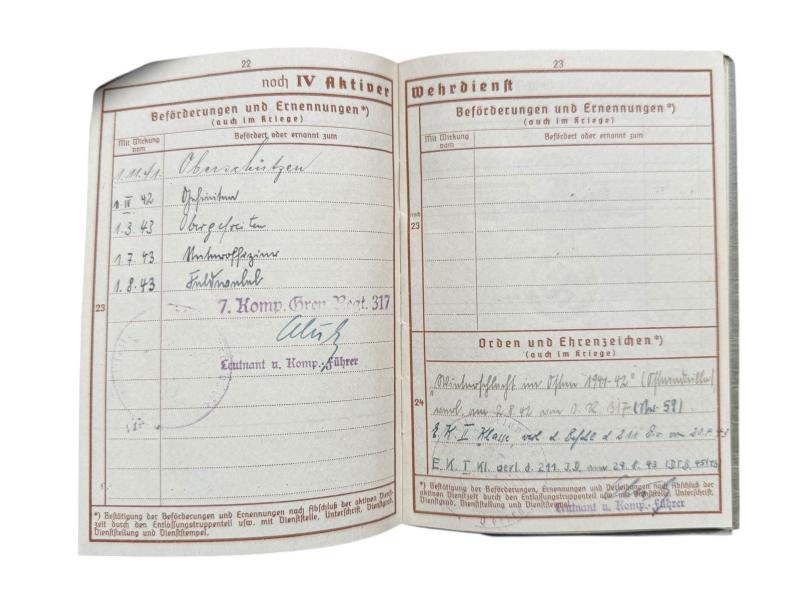 22
noch IV Aktiver
Beförderungen und Ernennungen*)
(auch im Kriege)
Mit Wirkung vom
Befördert oder ernannt zum
1.11.41. Oberschützen
1. IV 42 Gefreiten
1.3.43 Obergefreiten
1.7.43 Unteroffizier
1.8.43 Feldwebel
23
7. Komp. Gren. Regt. 317
Leutnant u. Komp.-Führer
*) Bestätigung der Beförderungen und Ernennungen nach Abschluß der aktiven Dienst-
zeit durch den Entlassungstruppenteil usw. mit Dienststelle, Unterschrift, Dienstgrad,
Dienststellung und Dienststempel.
23
Wehrdienst
Beförderungen und Ernennungen*)
(auch im Kriege)
Mit Wirkung vom
Befördert oder ernannt zum
noch
23
Orden und Ehrenzeichen*)
(auch im Kriege)
"Winterschlacht im Osten 1941-42" (Ostmedaille)
24
verl. am 2.8.42 von I. R. 317 (Nr. 59).
E.K. II Klasse, verl. d. 211 Div. am 43
E.K. I Kl. verl. d. 211. I.D. am 29.8.43
*) Bestätigung der Beförderungen, Ernennungen und Verleihungen nach Abschluß der
aktiven Dienstzeit durch den Entlassungstruppenteil usw. mit Dienststelle, Unterschrift,
Dienstgrad, Dienststellung und Dienststempel.
Leutnant u. Komp.-Führer